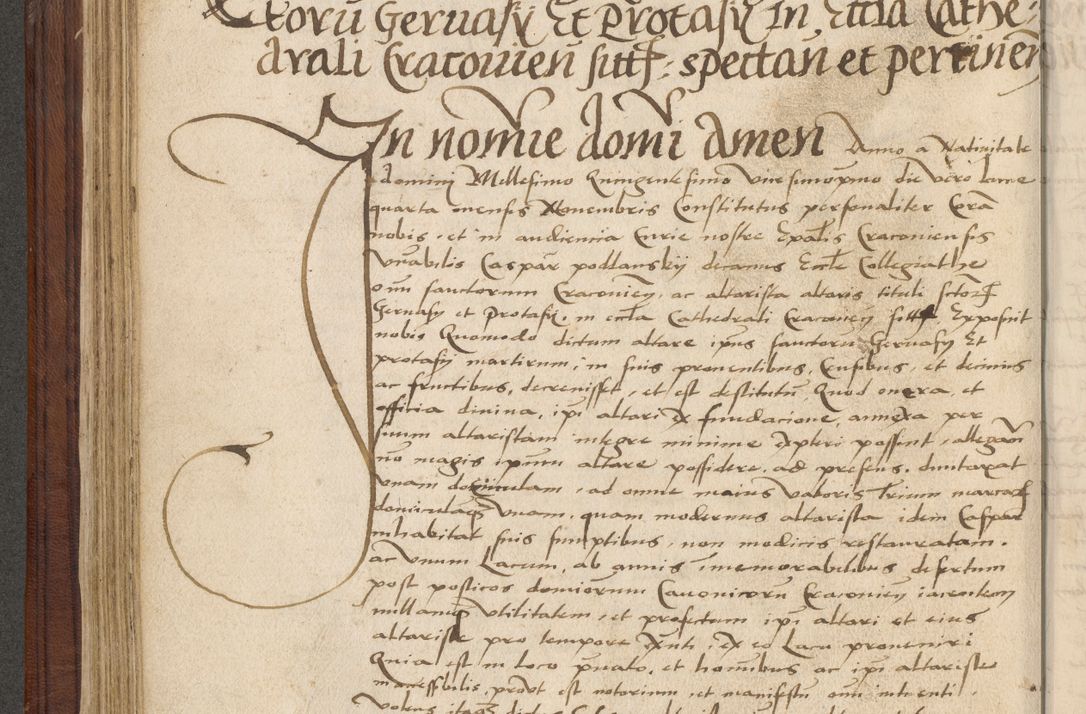 ctorũ Gervasÿ Et Protasÿ In Eccłia Cathe=
drali Cracovień sitt: spectan̄ et pertineñ
In nomie domi Amen Anno a Nativitate
domini Millesimo Quingentesimo vicesimo die vero lune
quarta mensis Novembris Constitutus personaliter Corã
nobis et in audiencia Curie nostre Epałis Cracoviensis
Vnabilis Caspar podlanskij decanus Eccłe Collegiathe
omĩ sanctorum Cracovień, ac altarista altaris tituli sctorꝝ
Gervasÿ et Protasÿ, in eccła Cathedrali Cracovień sitt Exposuit
nobis Quomodo dictum altare ipius sanctorũ Gervasÿ Et
protasÿ martirum, in suis proventibus, Censibus, et decimis
ac fructibus, decrevisset, et est destitutũ, Quod onera, et
officia divina, ipi altari ex fundacione, annexa per
suum altaristam integre minime expleri possunt, allegavit
nõ magis ipum altare possidere, ad presens, duntaxat
unam domunculam, ad omne maius valoris Trium marcarꝝ
domunculaꝝ unam, quam modernus altarista idem Caspar
inhabitat suis sumptibus, non modicis restauratam.
ac unum Lacum, ab annis immemorabilibus desertum
post posticos domorum Canonicorũ Cracovień iacentem
nullamqȝ utilitatem, et profectum ipi altari et eius
altariste pro tempore exñti, ex eo Lacu proveniri
Quia est in loco pvato, et hominibus ac ipi altariste
inaccessibilis, provt est notorium et manifestũ omĩ intuenti.
Volens itaqȝ dictus